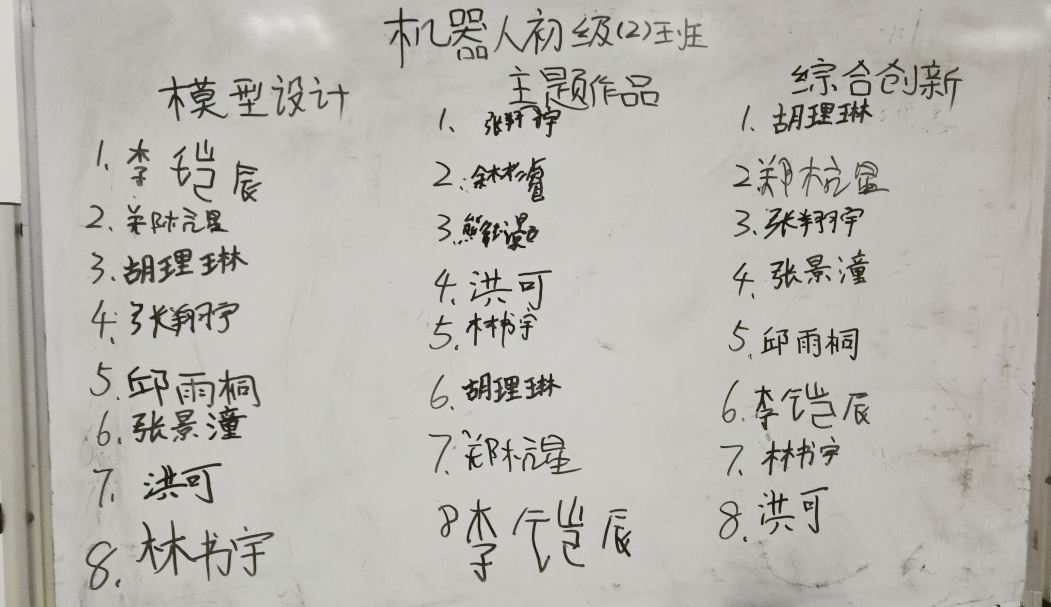 机器人初级(2)班
模型设计
1. 李铠辰
2. 郑杭星
3. 胡理琳
4. 张翔宇
5. 邱雨桐
6. 张景潼
7. 洪可
8. 林书宇
主题作品
1、张翔宇
2. 余彬睿
3. 熊
4. 洪可
5. 林书宇
6. 胡理琳
7. 郑杭星
8 李铠辰
综合创新
1. 胡理琳
2 郑杭星
3. 张翔宇
4. 张景潼
5. 邱雨桐
6. 李铠辰
7. 林书宇
8. 洪可